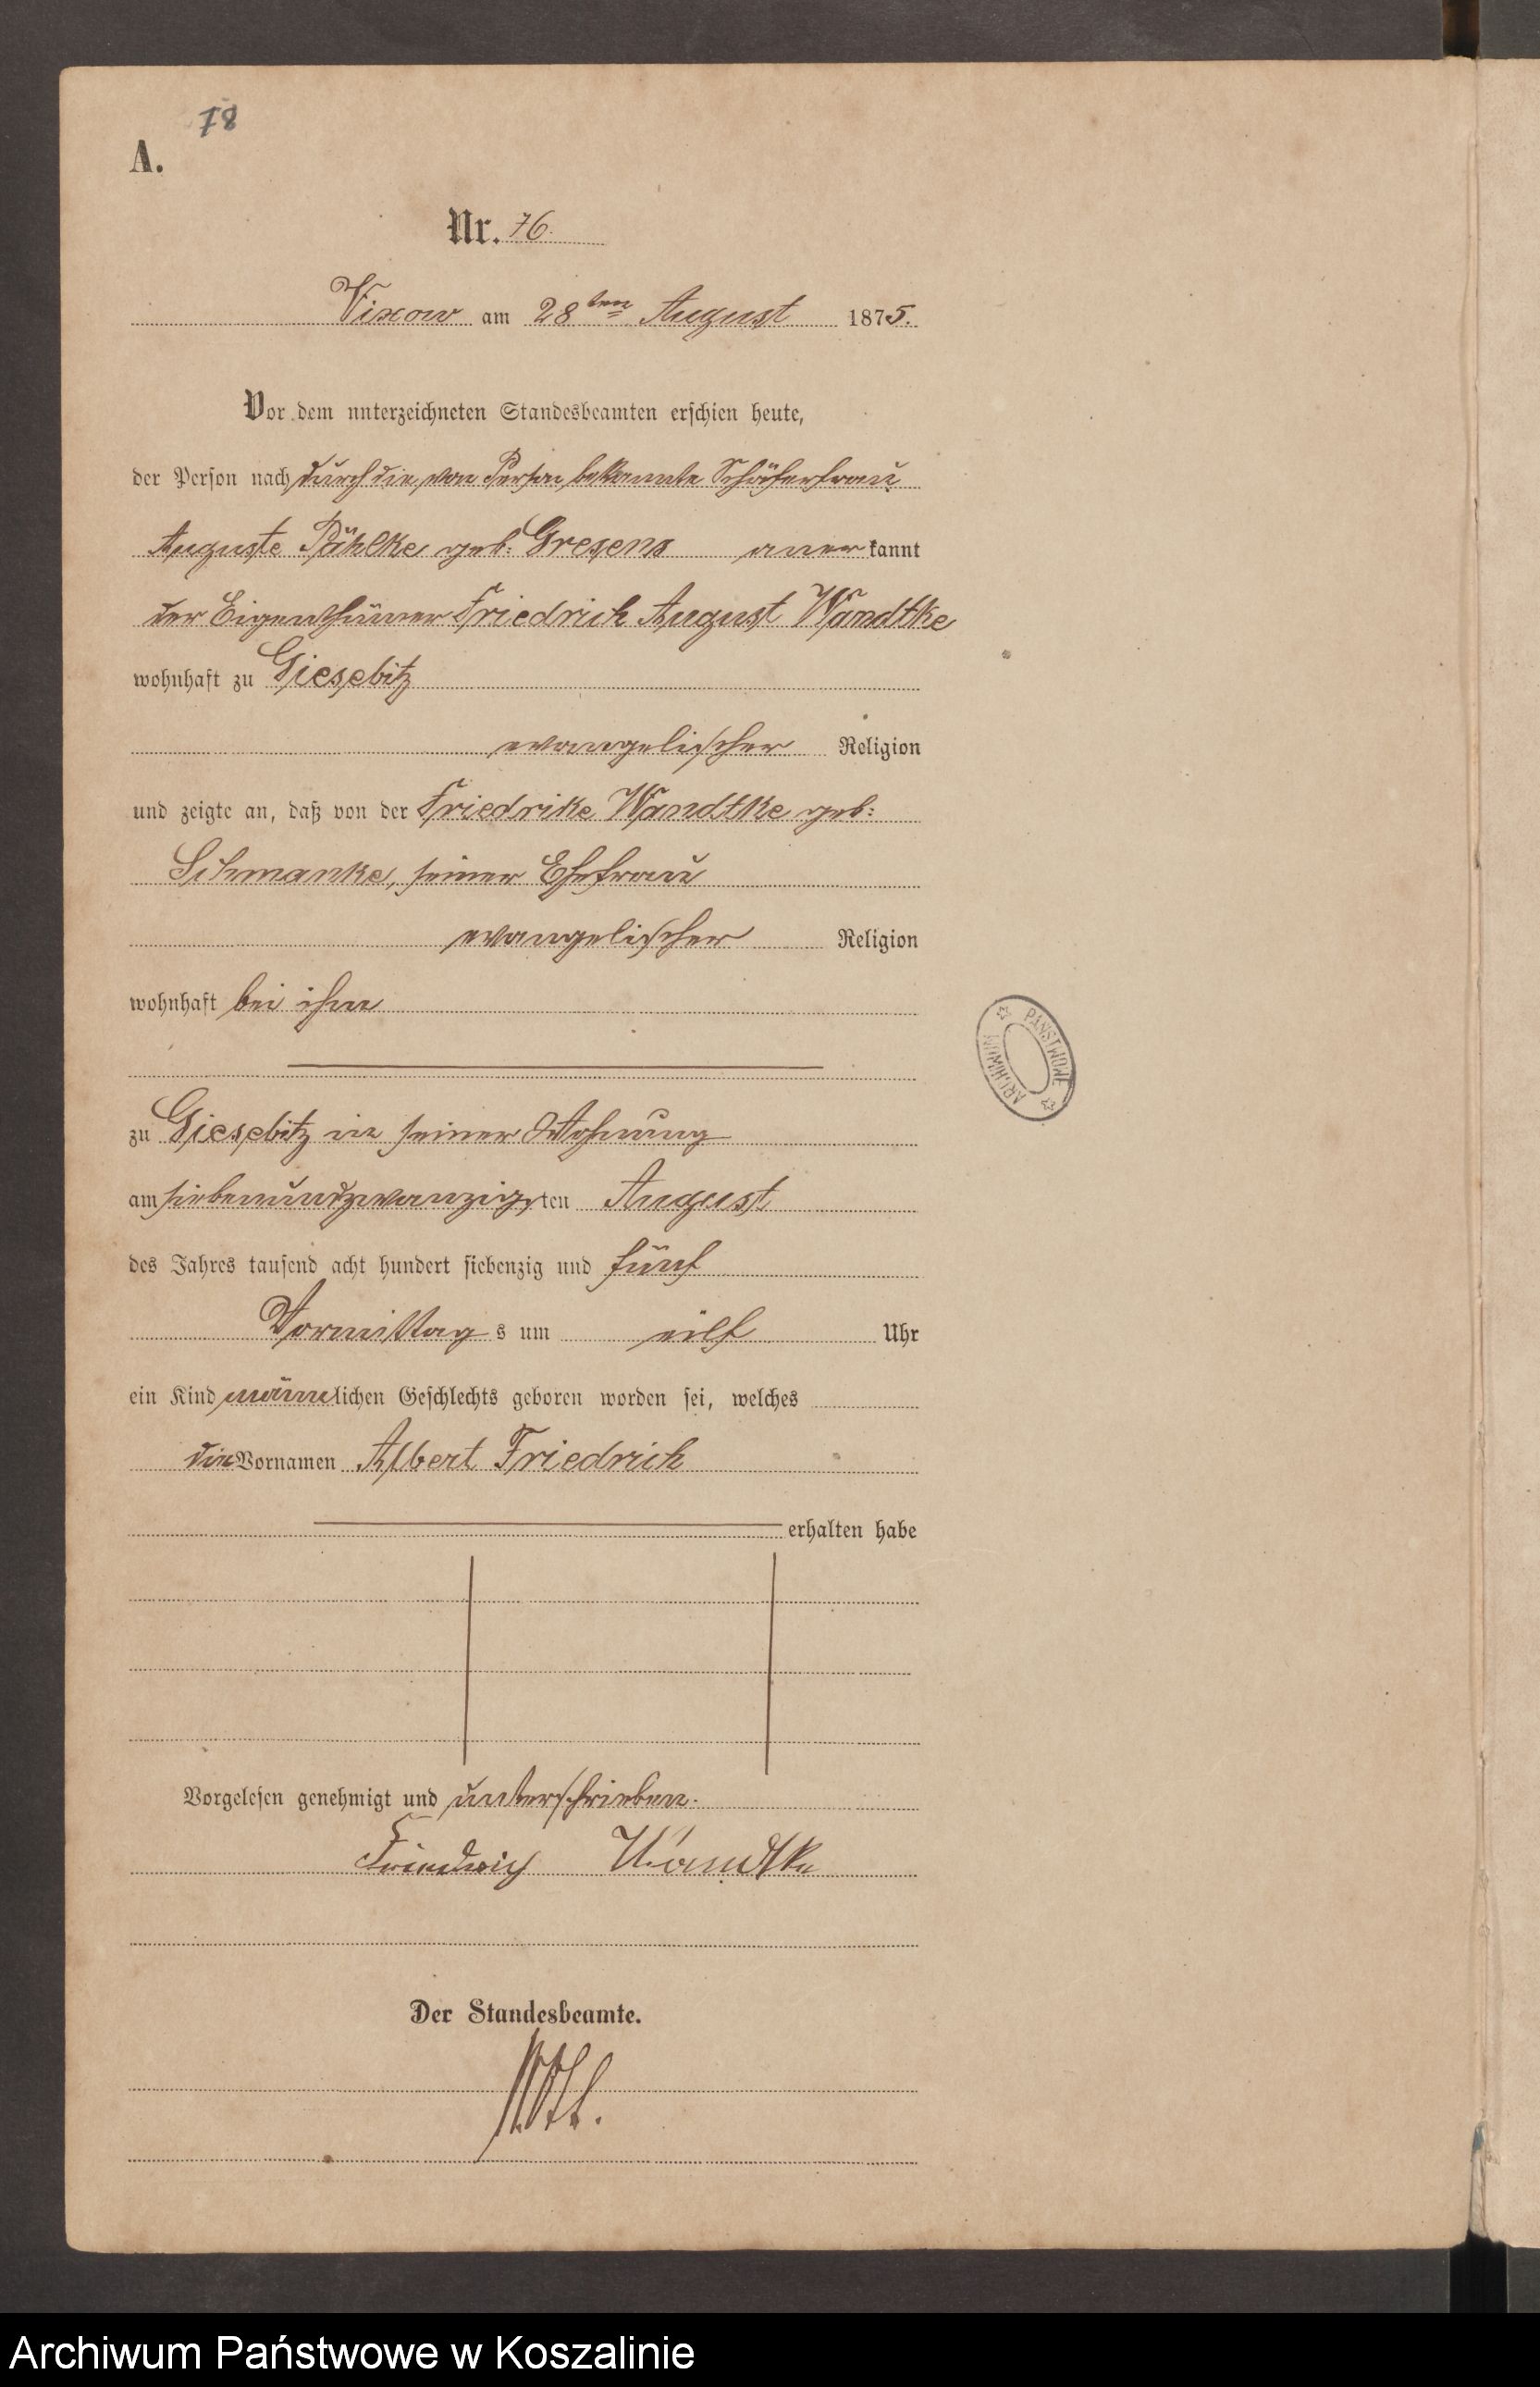 78
A.
Nr. 76.
Vixow am 28ten August 1875.
Vor dem unterzeichneten Standesbeamten erschien heute,
der Person nach durch die, von Person bekannte Schäferfrau
Auguste Pählke geb: Gresens anerkannt
der Eigenthümer Friedrich August Wandtke
wohnhaft zu Giesebitz
evangelischer Religion
und zeigte an, daß von der Friedrike Wandtke geb:
Schmanke, seiner Ehefrau
evangelischer Religion
wohnhaft bei ihm
zu Giesebitz in seiner Wohnung
am siebenundzwanzigsten August
des Jahres tausend acht hundert siebenzig und fünf
Vormittags um eilf Uhr
ein Kind männlichen Geschlechts geboren worden sei, welches
die Vornamen Albert Friedrich
erhalten habe
Vorgelesen genehmigt und unterschrieben.
Friedrich Wandtke
Der Standesbeamte.
ARCHIWUM PAŃSTWOWE
Archiwum Państwowe w Koszalinie